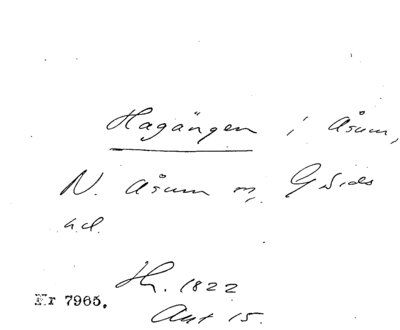 Hagängen i Åsum,
N. Åsum sn, Gärds
hd.
Hr. 1822
Akt 15.
Nr 7965.